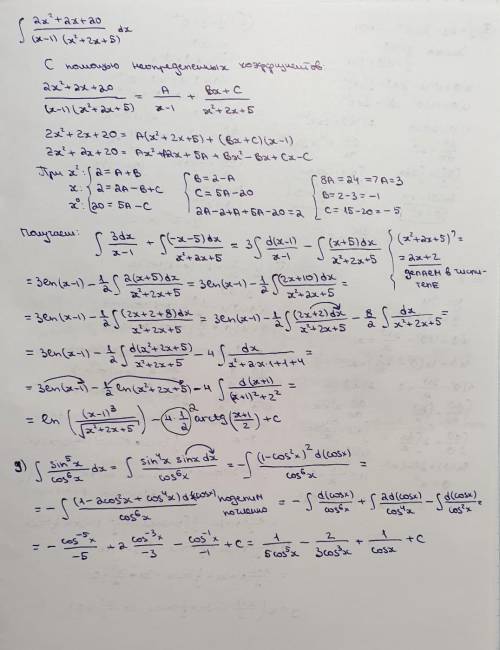 ∫ (2x²+2x+20)/((x-1)(x²+2x+5)) dx
С помощью неопределенных коэффициентов
(2x²+2x+20)/((x-1)(x²+2x+5)) = A/(x-1) + (Bx+C)/(x²+2x+5)
2x²+2x+20 = A(x²+2x+5) + (Bx+C)(x-1)
2x²+2x+20 = Ax²+A2x+5A + Bx²-Bx+Cx-C
При x²: {2=A+B {B=2-A {8A=24 => A=3
x: {2=2A-B+C {C=5A-20 {B=2-3=-1
x⁰: {20=5A-C {2A-2+A+5A-20=2 {C=15-20=-5
Получаем: ∫ 3dx/(x-1) + ∫ (-x-5)dx/(x²+2x+5) = 3∫ d(x-1)/(x-1) - ∫ (x+5)dx/(x²+2x+5) {(x²+2x+5)'= =2x+2 делаем в числителе
= 3ln(x-1) - 1/2 ∫ 2(x+5)dx/(x²+2x+5) = 3ln(x-1) - 1/2 ∫ (2x+10)dx/(x²+2x+5) =
= 3ln(x-1) - 1/2 ∫ (2x+2+8)dx/(x²+2x+5) = 3ln(x-1) - 1/2 ∫ (2x+2)dx/(x²+2x+5) - 8/2 ∫ dx/(x²+2x+5) =
= 3ln(x-1) - 1/2 ∫ d(x²+2x+5)/(x²+2x+5) - 4 ∫ dx/(x²+2x·1+1+4) =
= 3ln(x-1) - 1/2 ln(x²+2x+5) - 4 ∫ d(x+1)/((x+1)²+2²) =
= ln((x-1)³/√(x²+2x+5)) - 4·1/2 2 arctg((x+1)/2) + C
g) ∫ sin⁵x/cos⁶x dx = ∫ sin⁴x sinx dx/cos⁶x = -∫ (1-cos²x)² d(cosx)/cos⁶x =
= -∫ (1-2cos²x+cos⁴x) d(cosx)/cos⁶x поделим почленно = -∫ d(cosx)/cos⁶x + ∫ 2d(cosx)/cos⁴x - ∫ d(cosx)/cos²x =
= - cos⁻⁵x/-5 + 2 cos⁻³x/-3 - cos⁻¹x/-1 + C = 1/5cos⁵x - 2/3cos³x + 1/cosx + C